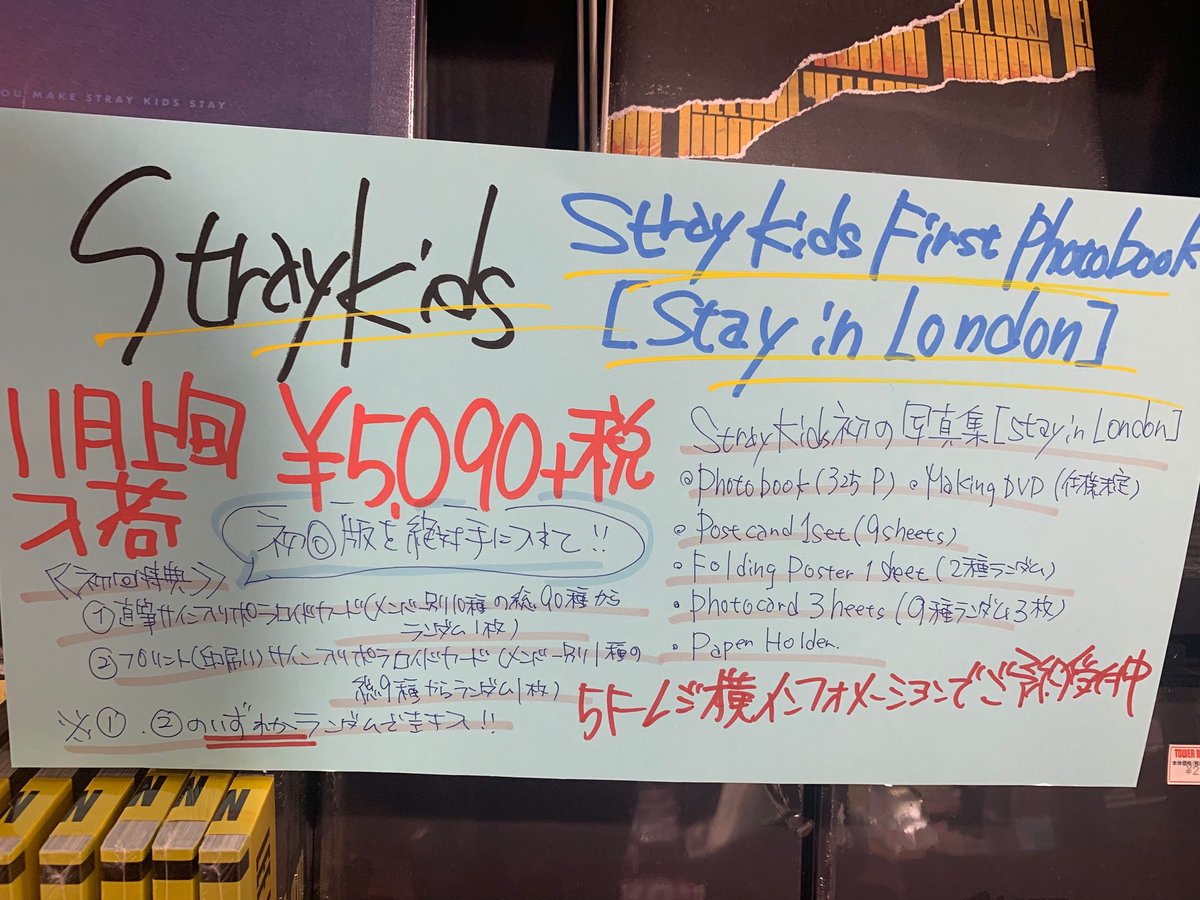 YOU MAKE STRAY KIDS STAY
Stray Kids
Stray Kids First Photobook
[Stay in London]
11月上旬
入荷
¥5,090+税
初回版を絶対手に入れて!!
《初回特典》
①直筆サイン入りポラロイドカード(メンバー別10種の総90種から
ランダム1枚)
②プリント(印刷)サイン入りポラロイドカード(メンバー別1種の
総9種からランダム1枚)
※①、②のいずれかランダムで封入!!
Stray Kids初の写真集[Stay in London]
◎Photobook(325P) ◎Making DVD(仕様未定)
○Postcard 1set(9sheets)
○Folding Poster 1 sheet(2種ランダム)
○photocard 3heets(9種ランダム3枚)
○Paper Holder.
5Fレジ横インフォメーションでご予約受付中
TOWER R
N
N
N
N
N